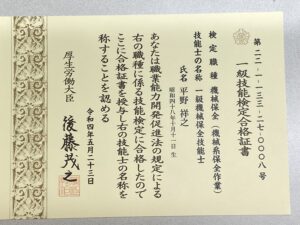 第二二-一-一三三-二七-〇〇〇八号
一級技能検定合格証書
検定職種 機械保全(機械系保全作業)
技能士の名称 一級機械保全技能士
氏名 平野 祥之
昭和四十八年十月十一日 生
あなたは職業能力開発促進法の規定による
右の職種に係る技能検定に合格したので
ここに合格証書を授与し右の技能士の名称を
称することを認める
令和四年五月二十三日
厚生労働大臣
後藤茂之